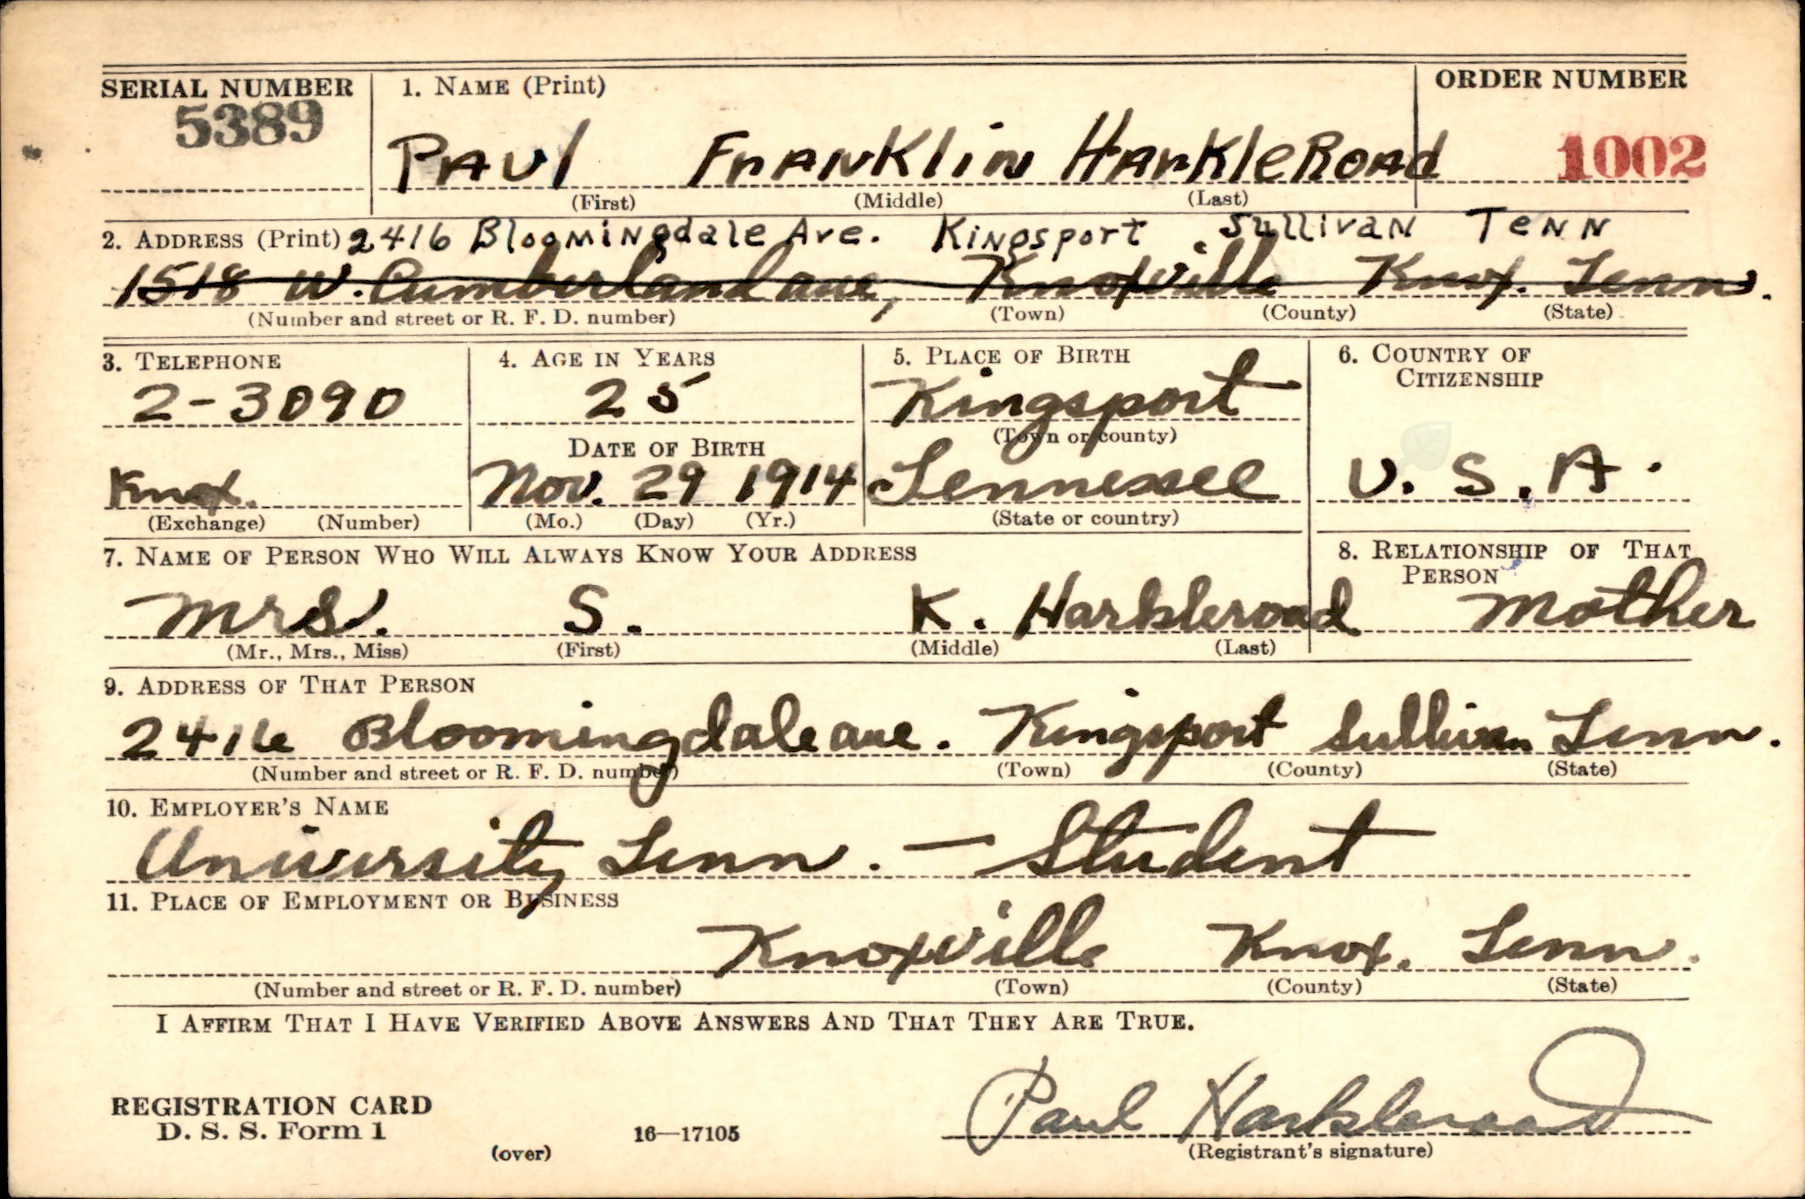 SERIAL NUMBER 1. NAME (Print) ORDER NUMBER
5389 PAUL FRANKLIN HARKLEROAD 1002
(First) (Middle) (Last)
2. ADDRESS (Print) 2416 Bloomingdale Ave. Kingsport Sullivan Tenn
1518 W. Cumberland ave, Knoxville Knox. Tenn.
(Number and street or R. F. D. number) (Town) (County) (State)
3. TELEPHONE 4. AGE IN YEARS 5. PLACE OF BIRTH 6. COUNTRY OF
CITIZENSHIP
2-3090 25 Kingsport
(Town or county)
DATE OF BIRTH
Knox. Nov. 29 1914 Tennessee U. S. A.
(Exchange) (Number) (Mo.) (Day) (Yr.) (State or country)
7. NAME OF PERSON WHO WILL ALWAYS KNOW YOUR ADDRESS 8. RELATIONSHIP OF THAT
PERSON
Mrs. S. K. Harkleroad Mother
(Mr., Mrs., Miss) (First) (Middle) (Last)
9. ADDRESS OF THAT PERSON
2416 Bloomingdale ave. Kingsport Sullivan Tenn.
(Number and street or R. F. D. number) (Town) (County) (State)
10. EMPLOYER'S NAME
University Tenn. — Student
11. PLACE OF EMPLOYMENT OR BUSINESS
Knoxville Knox. Tenn.
(Number and street or R. F. D. number) (Town) (County) (State)
I AFFIRM THAT I HAVE VERIFIED ABOVE ANSWERS AND THAT THEY ARE TRUE.
REGISTRATION CARD
D. S. S. Form 1
(over) 16—17105
Paul Harkleroad
(Registrant's signature)